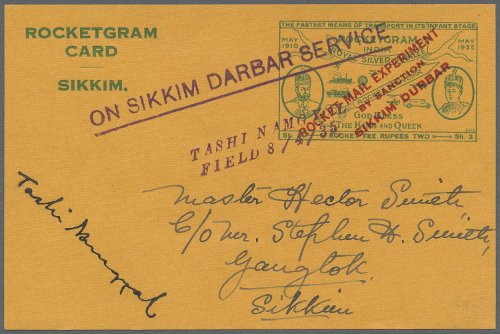 ROCKETGRAM
CARD
SIKKIM.
ON SIKKIM DARBAR SERVICE
THE FASTEST MEANS OF TRANSPORT IN ITS INFANT STAGE
MAY
1910
ROCKETGRAM
INDIA
ROYAL SILVER JUBILEE
MAY
1935
ROCKET MAIL EXPERIMENT
BY SANCTION
SIKKIM DURBAR
GOD BLESS
THE KING AND QUEEN
Sh. ROCKET FEE RUPEES TWO Sh. 3
TASHI NAMGYAL
FIELD 8/4/35
Tashi Namgyal
Master Hector Smith
C/o Mr. Stephen H. Smith,
Gangtok
Sikkim